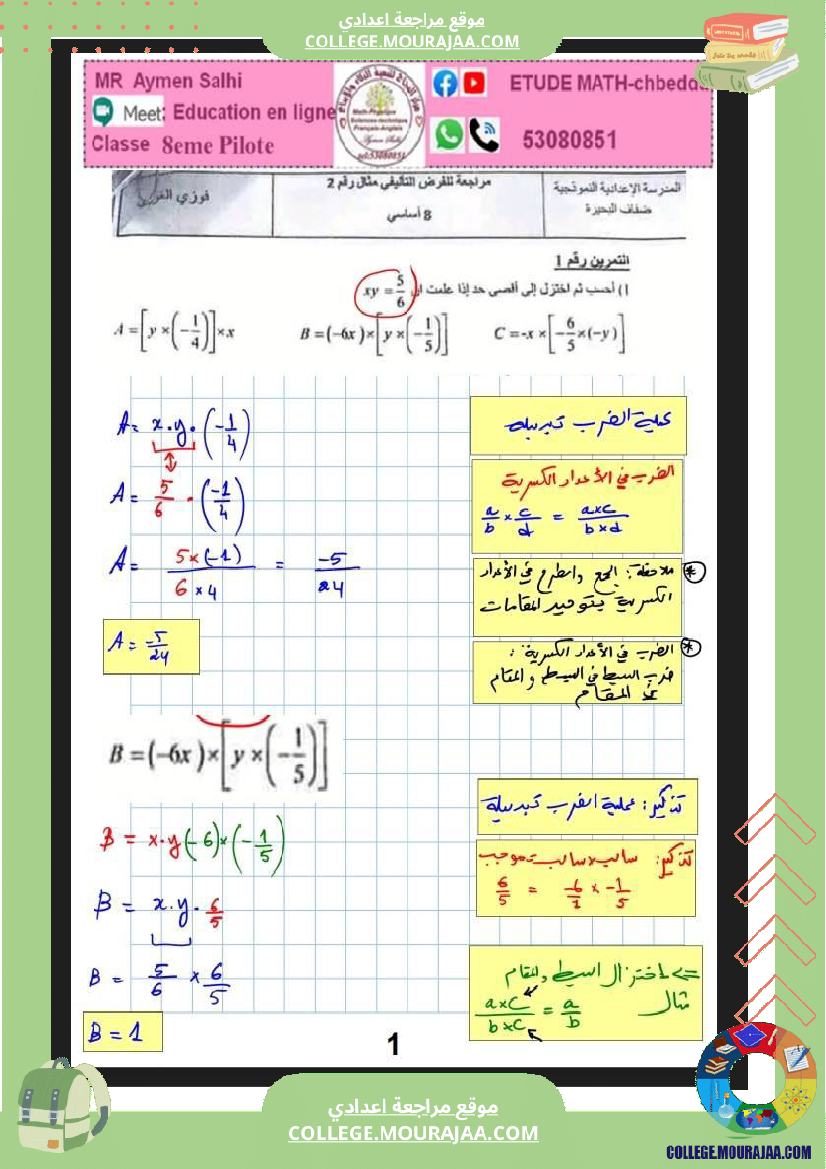 موقع مراجعة اعدادي
COLLEGE.MOURAJAA.COM
MR Aymen Salhi
Meet: Education en ligne
Classe 8eme Pilote
ETUDE MATH-chbedda
53080851
المدرسة الإعدادية النموذجية
ضفاف البحيرة
مراجعة للفرض التأليفي مثال رقم 2
8 أساسي
فوزي
التمرين رقم 1
1) أحسب ثم اختزل إلى أقصى حد إذا علمت ان xy = 5/6
A = [y × (-1/4)] × x
B = (-6x) × [y × (-1/5)]
C = -x × [-6/5 × (-y)]
A = x.y.(-1/4)
A = 5/6 . (-1/4)
A = 5×(-1)/6×4 = -5/24
A = -5/24
عملية الضرب تبديلية
الضرب في الأعداد الكسرية
a/b × c/d = a×c/b×d
ملاحظة: الجمع والطرح في الأعداد
الكسرية بتوحيد المقامات
الضرب في الأعداد الكسرية:
ضرب البسط في البسط والمقام
المقام
B = (-6x) × [y × (-1/5)]
B = x.y(-6)×(-1/5)
B = x.y.6/5
B = 5/6 × 6/5
B = 1
تذكير: عملية الضرب تبديلية
تذكير: سالب × سالب = موجب
6/5 = -6/1 × -1/5
=> اختزال البسط والمقام
مثال
a×c/b×c = a/b
1
موقع مراجعة اعدادي
COLLEGE.MOURAJAA.COM
COLLEGE.MOURAJAA.COM